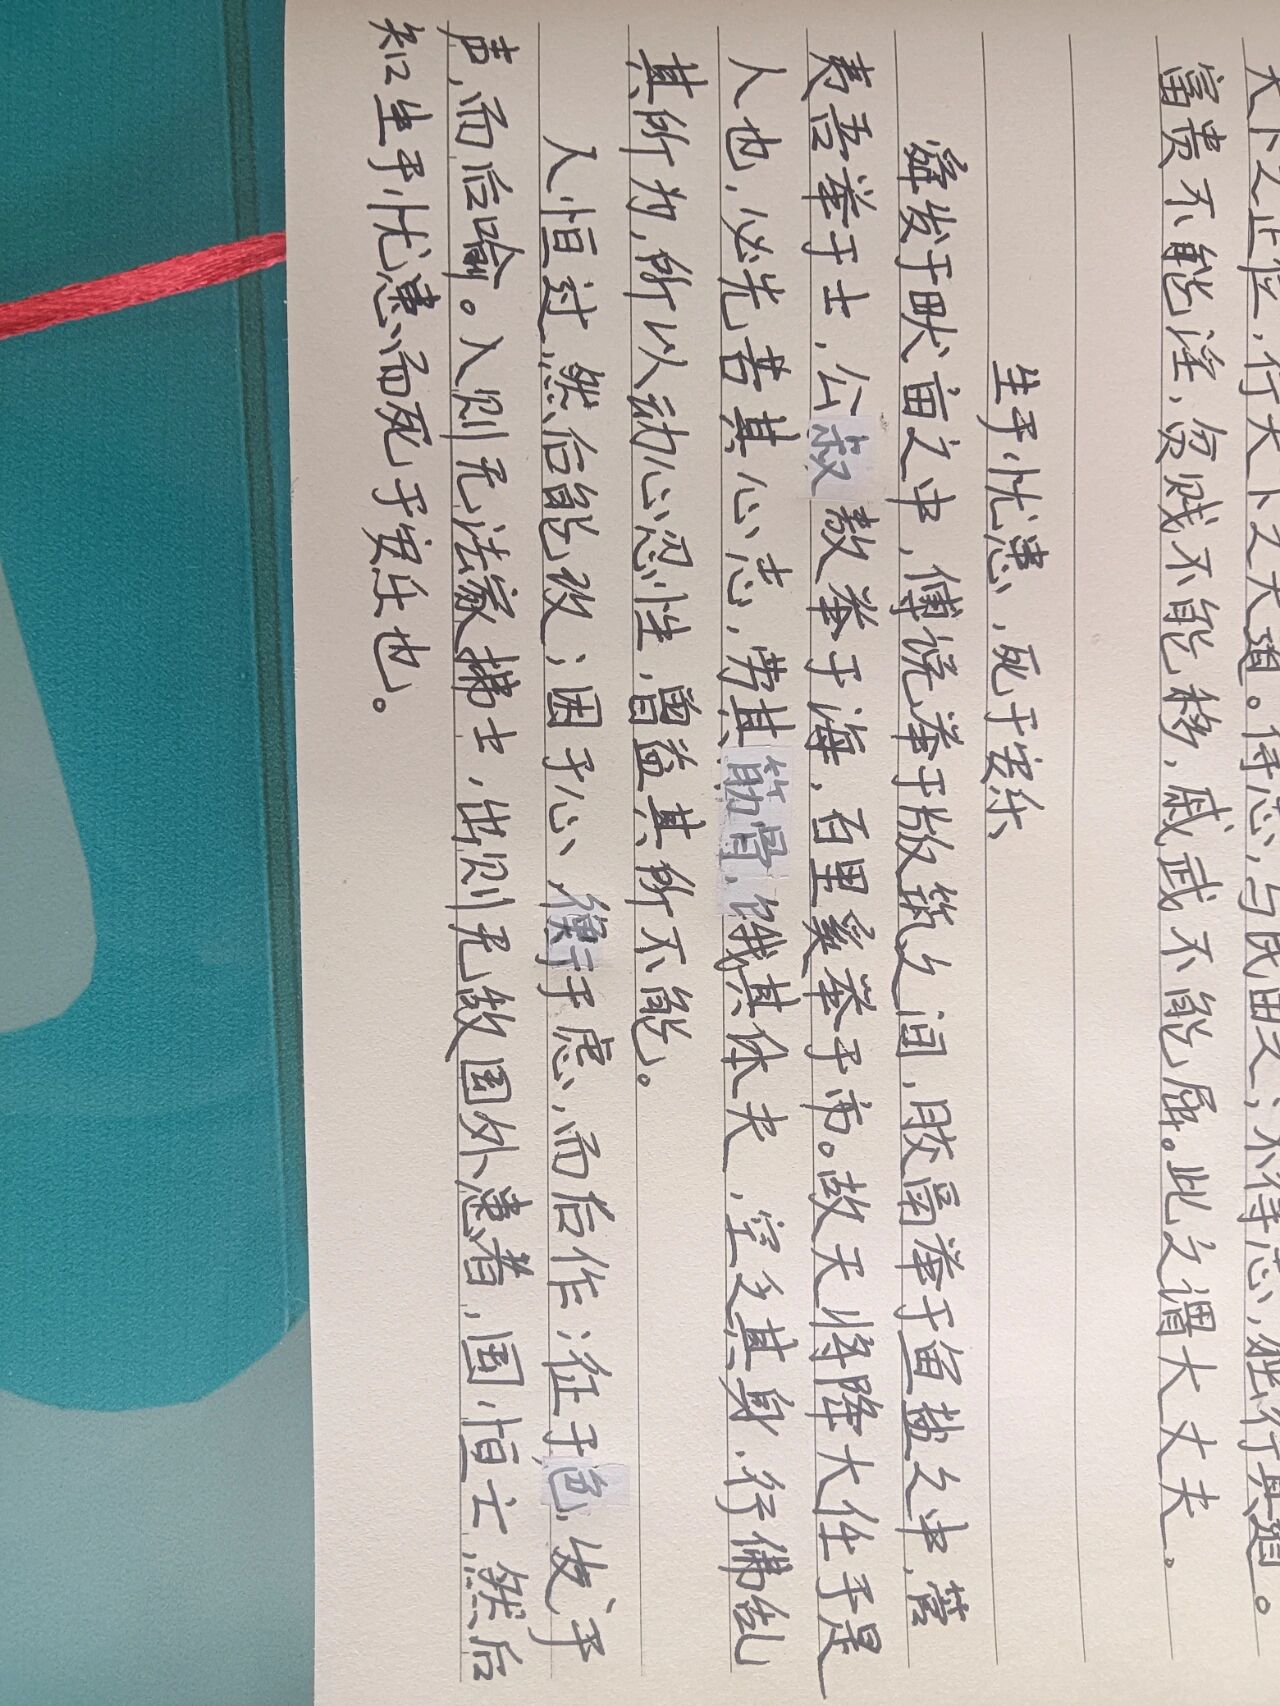 天下之正位，行天下之大道。得志，与民由之；不得志，独行其道。
富贵不能淫，贫贱不能移，威武不能屈。此之谓大丈夫。
生于忧患，死于安乐
舜发于畎亩之中，傅说举于版筑之间，胶鬲举于鱼盐之中，管
夷吾举于士，公叔敖举于海，百里奚举于市。故天将降大任于是
人也，必先苦其心志，劳其筋骨，饿其体夫，空乏其身，行佛乱
其所为，所以动心忍性，曾益其所不能。
人恒过，然后能改；困于心，衡于虑，而后作；征于色，发于
声，而后喻。入则无法家拂士，出则无敌国外患者，国恒亡，然后
知生于忧患而死于安乐也。